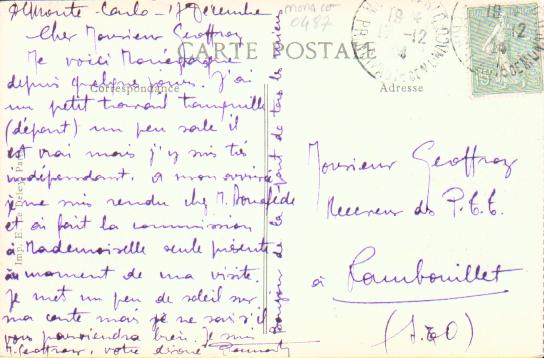 Monte-Carlo - 17 Décembre
Cher Monsieur Geoffroy
Je voici Monégasque
depuis quelques jours. J'ai
un petit travail tranquille
(départ) un peu sale il
est vrai mais j'y suis très
indépendant. a mon arrivée
je me suis rendu chez M.
et ai fait la commission
à Mademoiselle seule présente
au moment de ma visite.
Je met un peu de soleil sur
ma carte mais je ne sais s'il
vous parviendra bien. Je suis
M. Geoffroy, votre dévoué
Bonjour de la part de tous les
monaco
0487
CARTE POSTALE
Correspondance
Adresse
Monsieur Geoffroy
Receveur des P.T.T.
à Rambouillet
(S.&O)
Imp. E. Le Deley, Paris
18
12